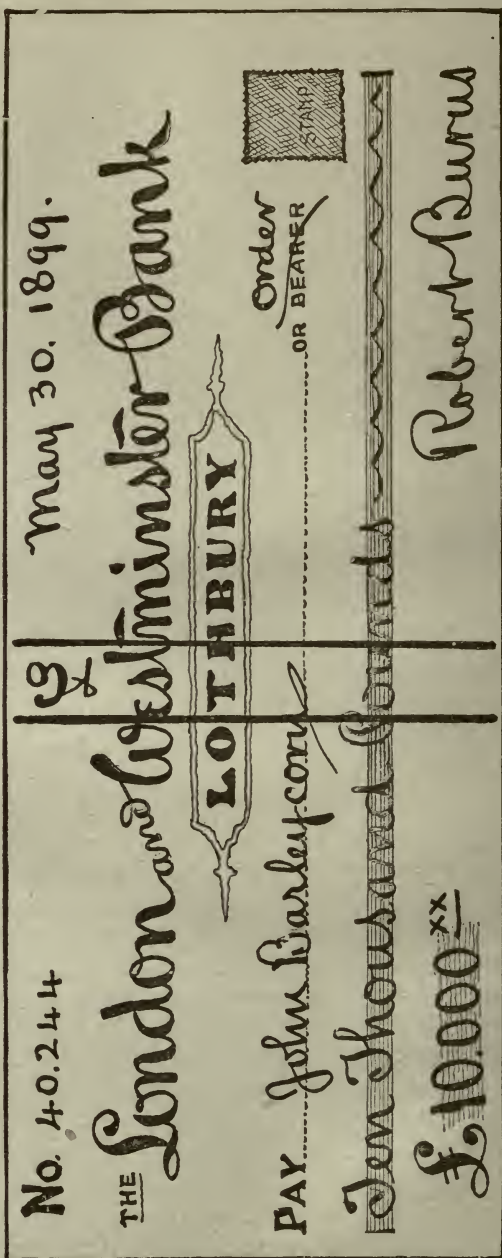 No. 40.244 May 30. 1899.
THE London and Westminster Bank
LOTHBURY
PAY John Barleycorn Order OR BEARER
STAMP
Ten Thousand Pounds
£10.000 xx Robert Burns